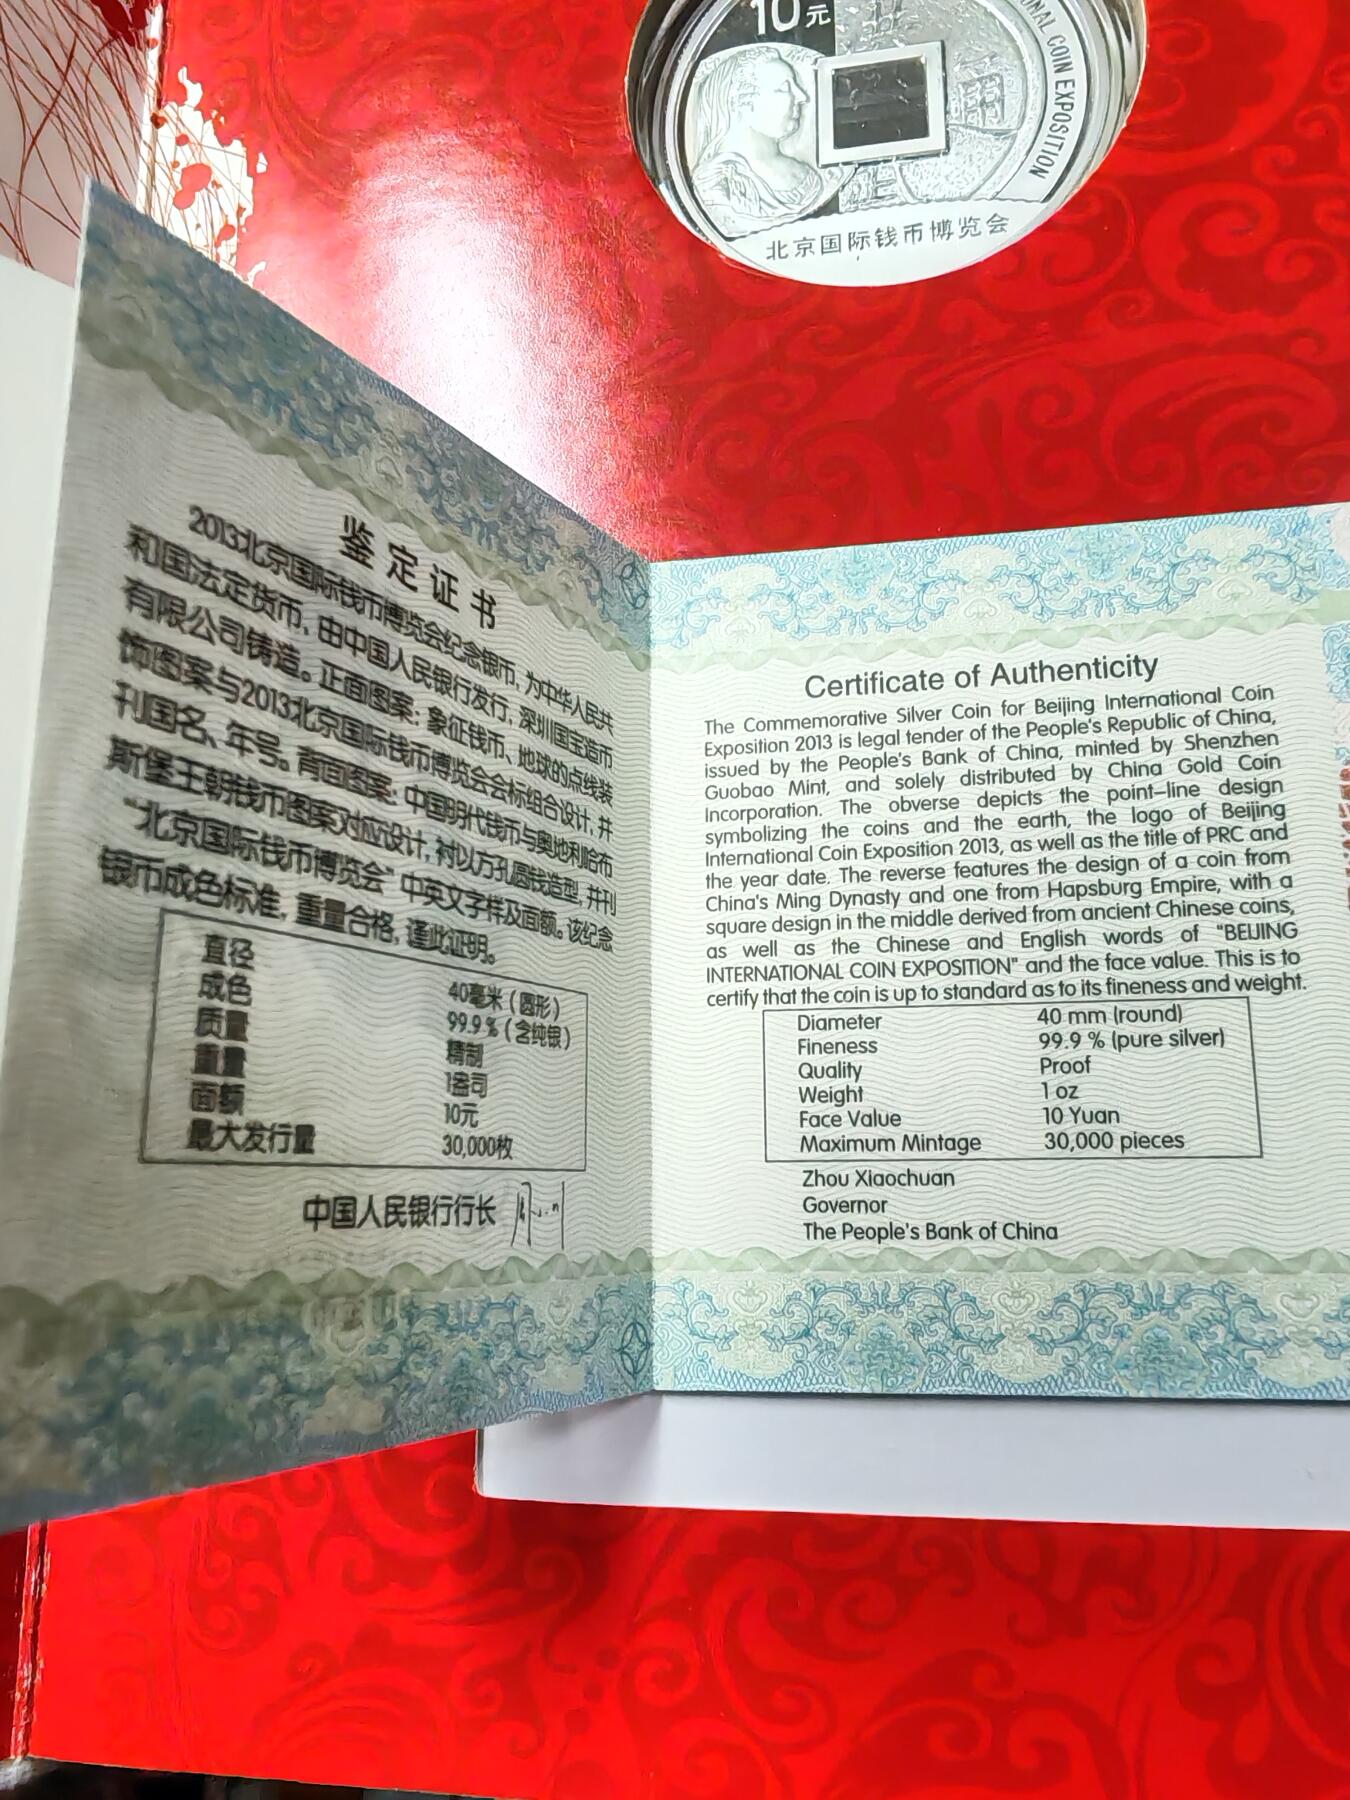 10元
NAL COIN EXPOSITION
北京国际钱币博览会
鉴定证书
2013北京国际钱币博览会纪念银币,为中华人民共
和国法定货币,由中国人民银行发行,深圳国宝造币
有限公司铸造。正面图案:象征钱币、地球的点线装
饰图案与2013北京国际钱币博览会会标组合设计,并
刊国名、年号。背面图案:中国明代钱币与奥地利哈布
斯堡王朝钱币图案对应设计,衬以方孔圆钱造型,并刊
“北京国际钱币博览会”中英文字样及面额。该纪念
银币成色标准,重量合格,谨此证明。
直径 40毫米(圆形)
成色 99.9%(含纯银)
质量 精制
重量 1盎司
面额 10元
最大发行量 30,000枚
中国人民银行行长
Certificate of Authenticity
The Commemorative Silver Coin for Beijing International Coin
Exposition 2013 is legal tender of the People's Republic of China,
issued by the People's Bank of China, minted by Shenzhen
Guobao Mint, and solely distributed by China Gold Coin
Incorporation. The obverse depicts the point-line design
symbolizing the coins and the earth, the logo of Beijing
International Coin Exposition 2013, as well as the title of PRC and
the year date. The reverse features the design of a coin from
China's Ming Dynasty and one from Hapsburg Empire, with a
square design in the middle derived from ancient Chinese coins,
as well as the Chinese and English words of "BEIJING
INTERNATIONAL COIN EXPOSITION" and the face value. This is to
certify that the coin is up to standard as to its fineness and weight.
Diameter 40 mm (round)
Fineness 99.9 % (pure silver)
Quality Proof
Weight 1 oz
Face Value 10 Yuan
Maximum Mintage 30,000 pieces
Zhou Xiaochuan
Governor
The People's Bank of China